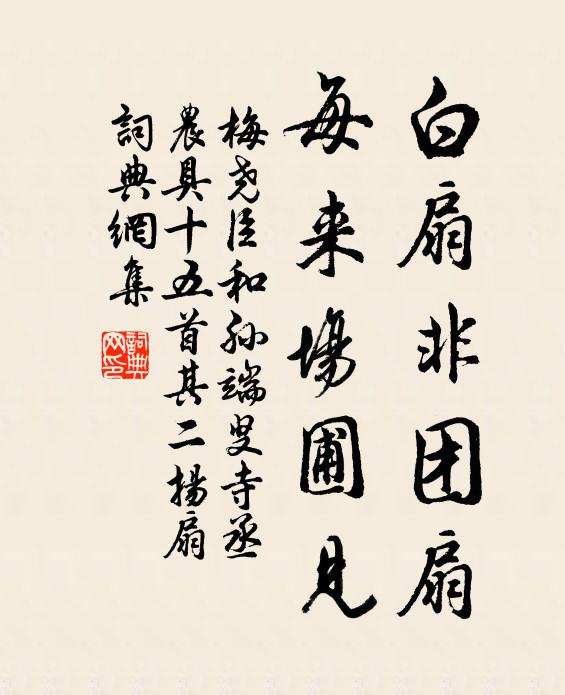 白扇非团扇
每来場圃見
梅尧臣和孙端叟寺丞
農具十五首其二揚扇
詞典網集
詞典
网印